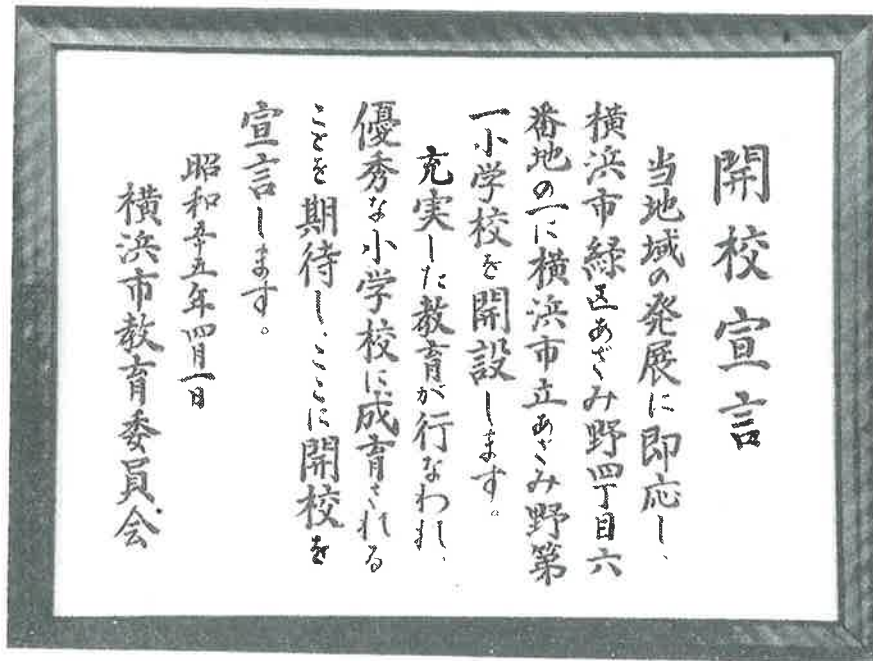 開校宣言
当地域の発展に即応し、
横浜市緑区あざみ野四丁目六
番地の一に横浜市立あざみ野第
一小学校を開設します。
充実した教育が行なわれ、
優秀な小学校に成育される
ことを期待し、ここに開校を
宣言します。
昭和五十五年四月一日
横浜市教育委員会